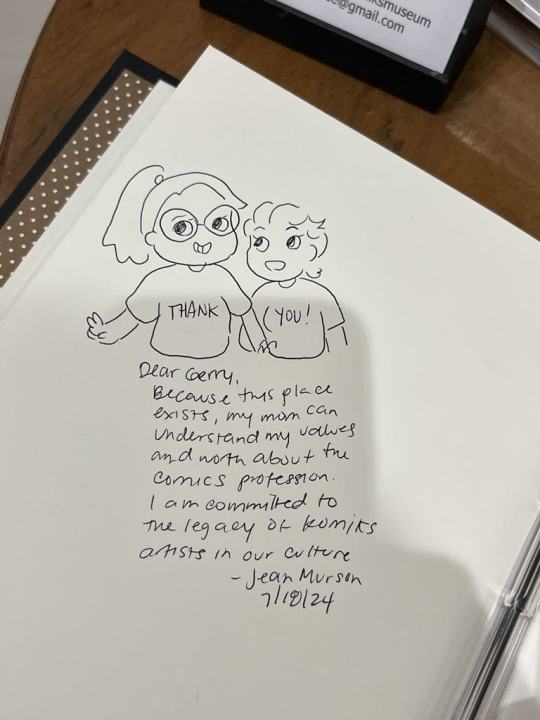 ksmuseum
e@gmail.com
THANK
YOU!
Dear Gerry,
Because this place
exists, my mom can
understand my values
and worth about the
comics profession.
I am committed to
the legacy of komiks
artists in our culture
- Jean Murson
7/18/24